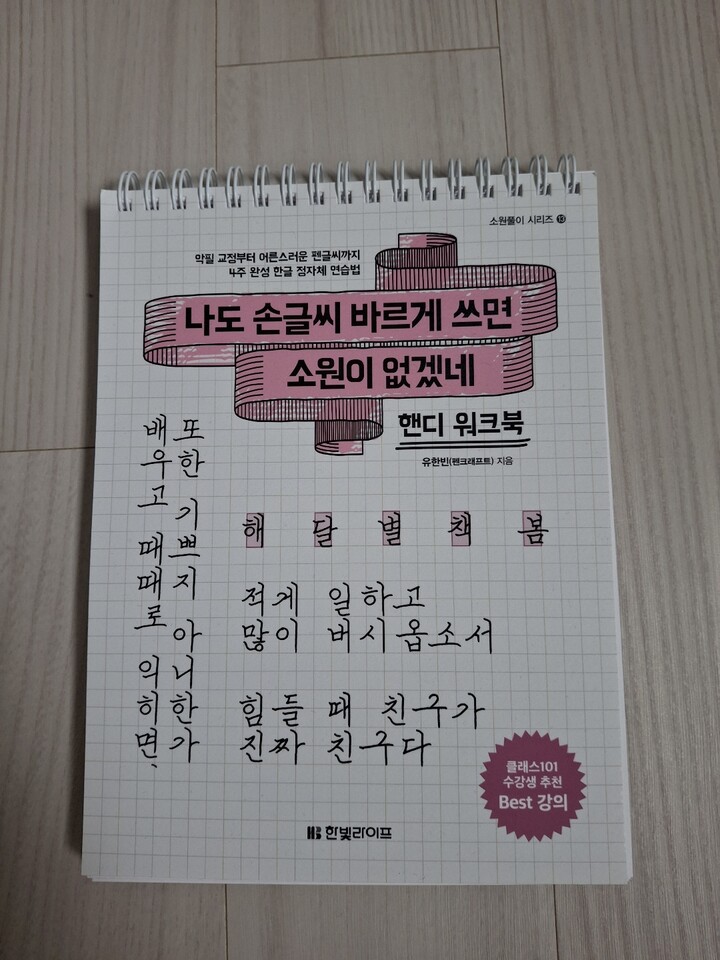 소원풀이 시리즈 13
악필 교정부터 어른스러운 펜글씨까지
4주 완성 한글 정자체 연습법
나도 손글씨 바르게 쓰면
소원이 없겠네
핸디 워크북
유한빈(펜크래프트) 지음
배우고 때때로 익히면,
또한 기쁘지 아니한가
해 달 별 책 봄
적게 일하고
많이 버시옵소서
힘들 때 친구가
진짜 친구다
클래스101
수강생 추천
Best 강의
HB 한빛라이프